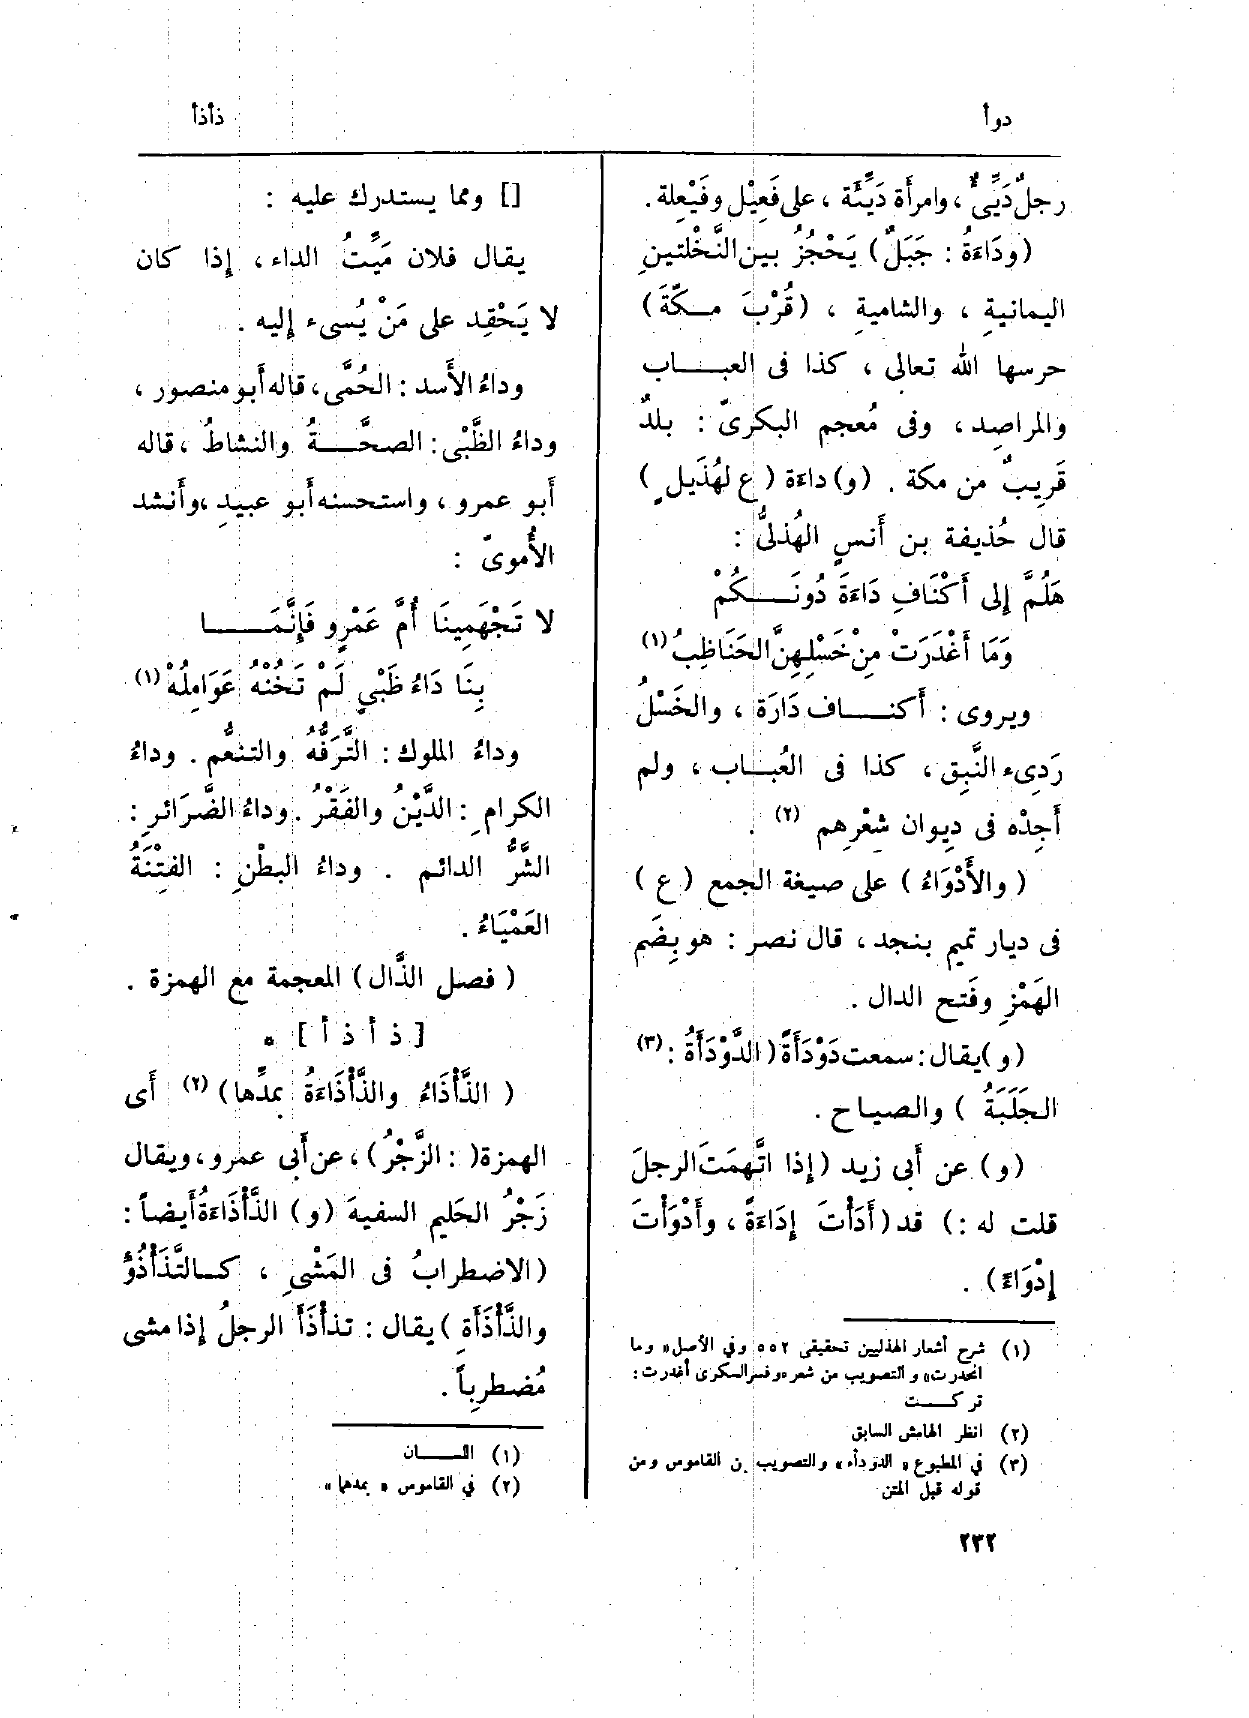 دوأ
ذأذأ
رجلٌ دَيِّئٌ ، وامرأة دَيِّئَة ، على فَعِيْل وفَيْعِلة .
(ودَاءَةُ : جَبَلٌ) يَحْجُزُ بين النَّخْلتينِ
اليمانيةِ ، والشاميةِ ، (قُرْبَ مـكَّةَ)
حرسها الله تعالى ، كذا فى العبـاب
والمراصِد ، وفى مُعجم البكرىّ : بلدٌ
قَرِيبٌ من مكة . (و) داءة (ع لهُذَيلٍ)
قال حُذيفة بن أَنسٍ الهُذلىُّ :
هَلُمَّ إلى أَكْنَافِ دَاءَةَ دُونَـكُمْ
وَمَا أَغْدَرَتْ مِنْ خَسْلِهِنَّ الحَنَاظِبُ (١)
ويروى : أَكنـاف دَارَة ، والخَسْلُ
رَدِىء النَّبِق ، كذا فى العُبـاب ، ولم
أَجِدْه فى دِيوان شعْرِهم (٢) .
(والأَدْوَاءُ) على صيغة الجمع (ع)
فى ديار تميم بنجد ، قال نصر : هو بِضَم
الهَمْزِ وفَتح الدال .
(و) يقال : سمعت دَوْدَأَةً (الدَّوْدَأَةُ : (٣)
الجَلَبَةُ) والصياح .
(و) عن أَبى زيد (إذا اتَّهمَتَ الرجلَ
قلت له :) قد (أَدَأْتَ إِدَاءَةً ، وأَدْوَأْتَ
إِدْوَاءً) .
(١) شرح أشعار الهذليين تحقيقى ٥٥٢ وفي الأصل « وما
انحدرت » والتصويب من شعره وفسر السكرى أغدرت :
تركـت
(٢) انظر الهامش السابق
(٣) في المطبوع « الدودأء » والتصويب من القاموس ومن
قوله قبل المتن
[] ومما يستدرك عليه :
يقال فلان مَيِّتُ الداء ، إذا كان
لا يَحْقِد على مَنْ يُسىء إليه .
وداءُ الأَسد : الحُمَّى ، قاله أَبو منصور ،
وداءُ الظَّبْى : الصحَّـةُ والنشاطُ ، قاله
أَبو عمرو ، واستحسنه أَبو عبيدٍ ، وأَنشد
الأُموىّ :
لا تَجْهَمِينَا أُمَّ عَمْرٍو فَإِنَّمَـا
بِنَا دَاءُ ظَبْيٍ لَمْ تَخُنْهُ عَوَامِلُهْ (١)
وداءُ الملوك : التَّرَفُّه والتنعُّم . وداءُ
الكرامِ : الدَّيْنُ والفَقْرُ . وداءُ الضَّرَائرِ :
الشَّرُّ الدائم . وداءُ البطْنِ : الفِتْنَةُ
العَمْيَاءُ .
(فصل الذَّال) المعجمة مع الهمزة .
[ ذ أ ذ أ ] *
(الذَّأْذَاءُ والذَّأْذَاءَةُ بمدِّها) (٢) أَى
الهمزة ( : الزَّجْرُ) ، عن أَبى عمرو ، ويقال
زَجْرُ الحَليم السفيهَ (و) الذَّأْذَاءَةُ أَيضاً :
(الاضطرابُ فى المَشْىِ ، كـالتَّذَأْذُؤ
والذَّأْذَأَةِ) يقال : تذأْذَأَ الرجلُ إذا مشى
مُضطرِباً .
(١) اللـسان
(٢) في القاموس « بمدهما »
٢٣٢